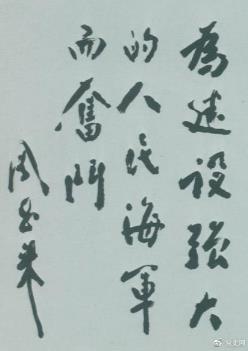 為建設強大
的人民海軍
而奮鬥
周恩来